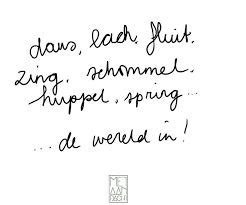 dans, lach, fluit,
zing, schommel,
huppel, spring...
...de wereld in!
MET
AAN
DACHT